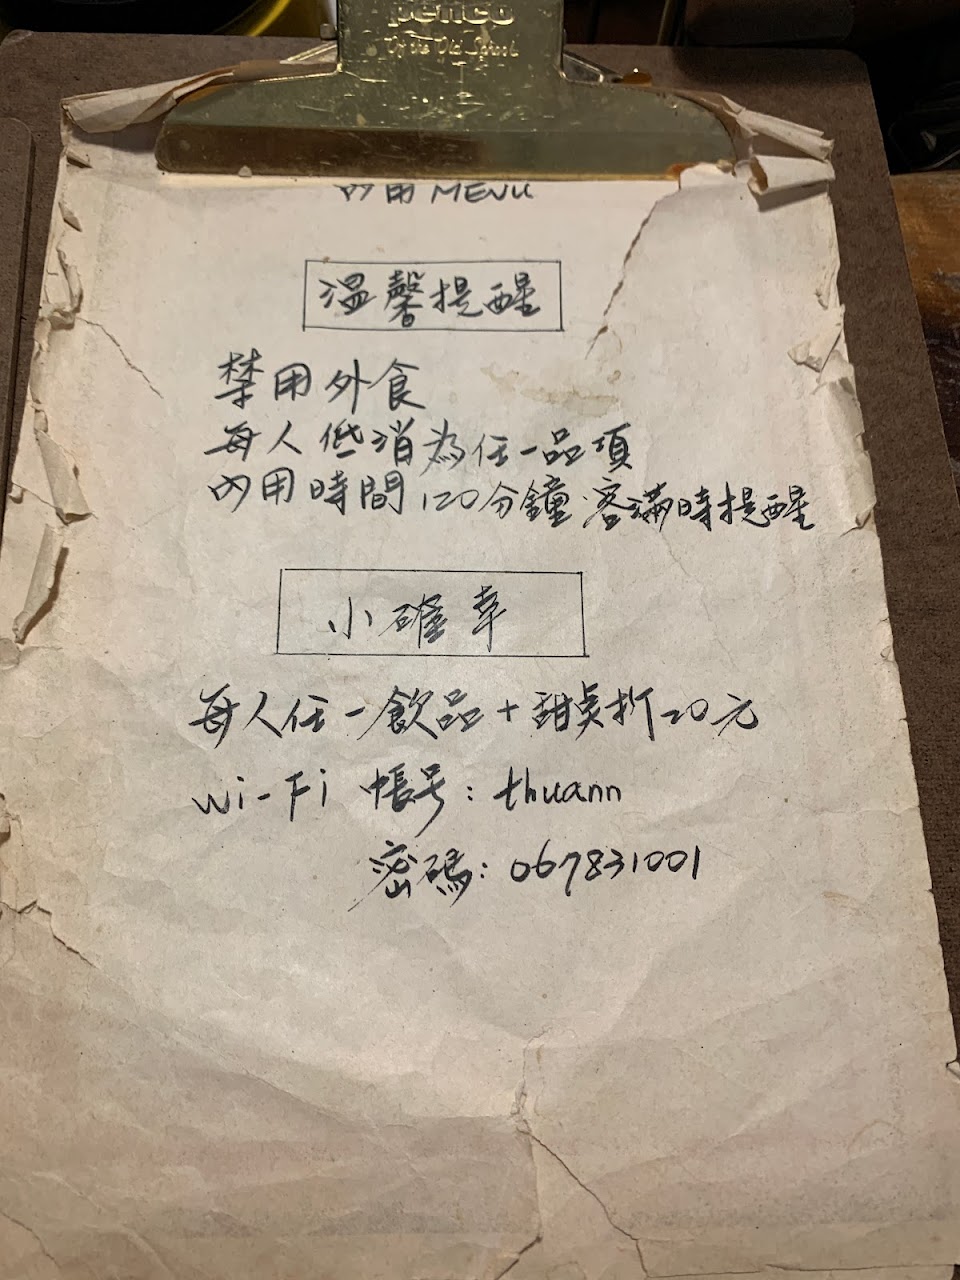 penco
Of the Old School
內用 MENU
溫馨提醒
禁用外食
每人低消為任一品項
內用時間120分鐘 客滿時提醒
小確幸
每人任一飲品+甜點折20元
Wi-Fi 帳号:thuann
密碼:067831001